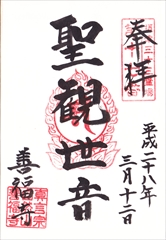 奉拝
平成二十八年
三月十二日
聖観世音
善福寺